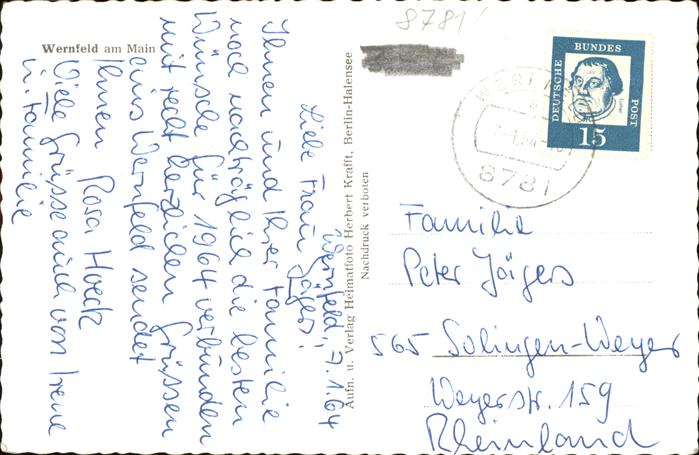 8781
Wernfeld am Main
Wernfeld, 7.1.64
Liebe Frau Jägers!
Ihnen und Ihrer Familie
noch nachträglich die besten
Wünsche für 1964 verbunden
mit recht herzlichen Grüssen
aus Wernfeld sendet
Ihnen Rosa Hoeck
Viele Grüsse auch von Irene
u. Familie
Aufn. u. Verlag Heimatfoto Herbert Krafft, Berlin-Halensee
Nachdruck verboten
DEUTSCHE BUNDES POST
Luther
15
8781
Familie
Peter Jägers
565 Solingen-Weyer
Weyerstr. 159
Rheinland